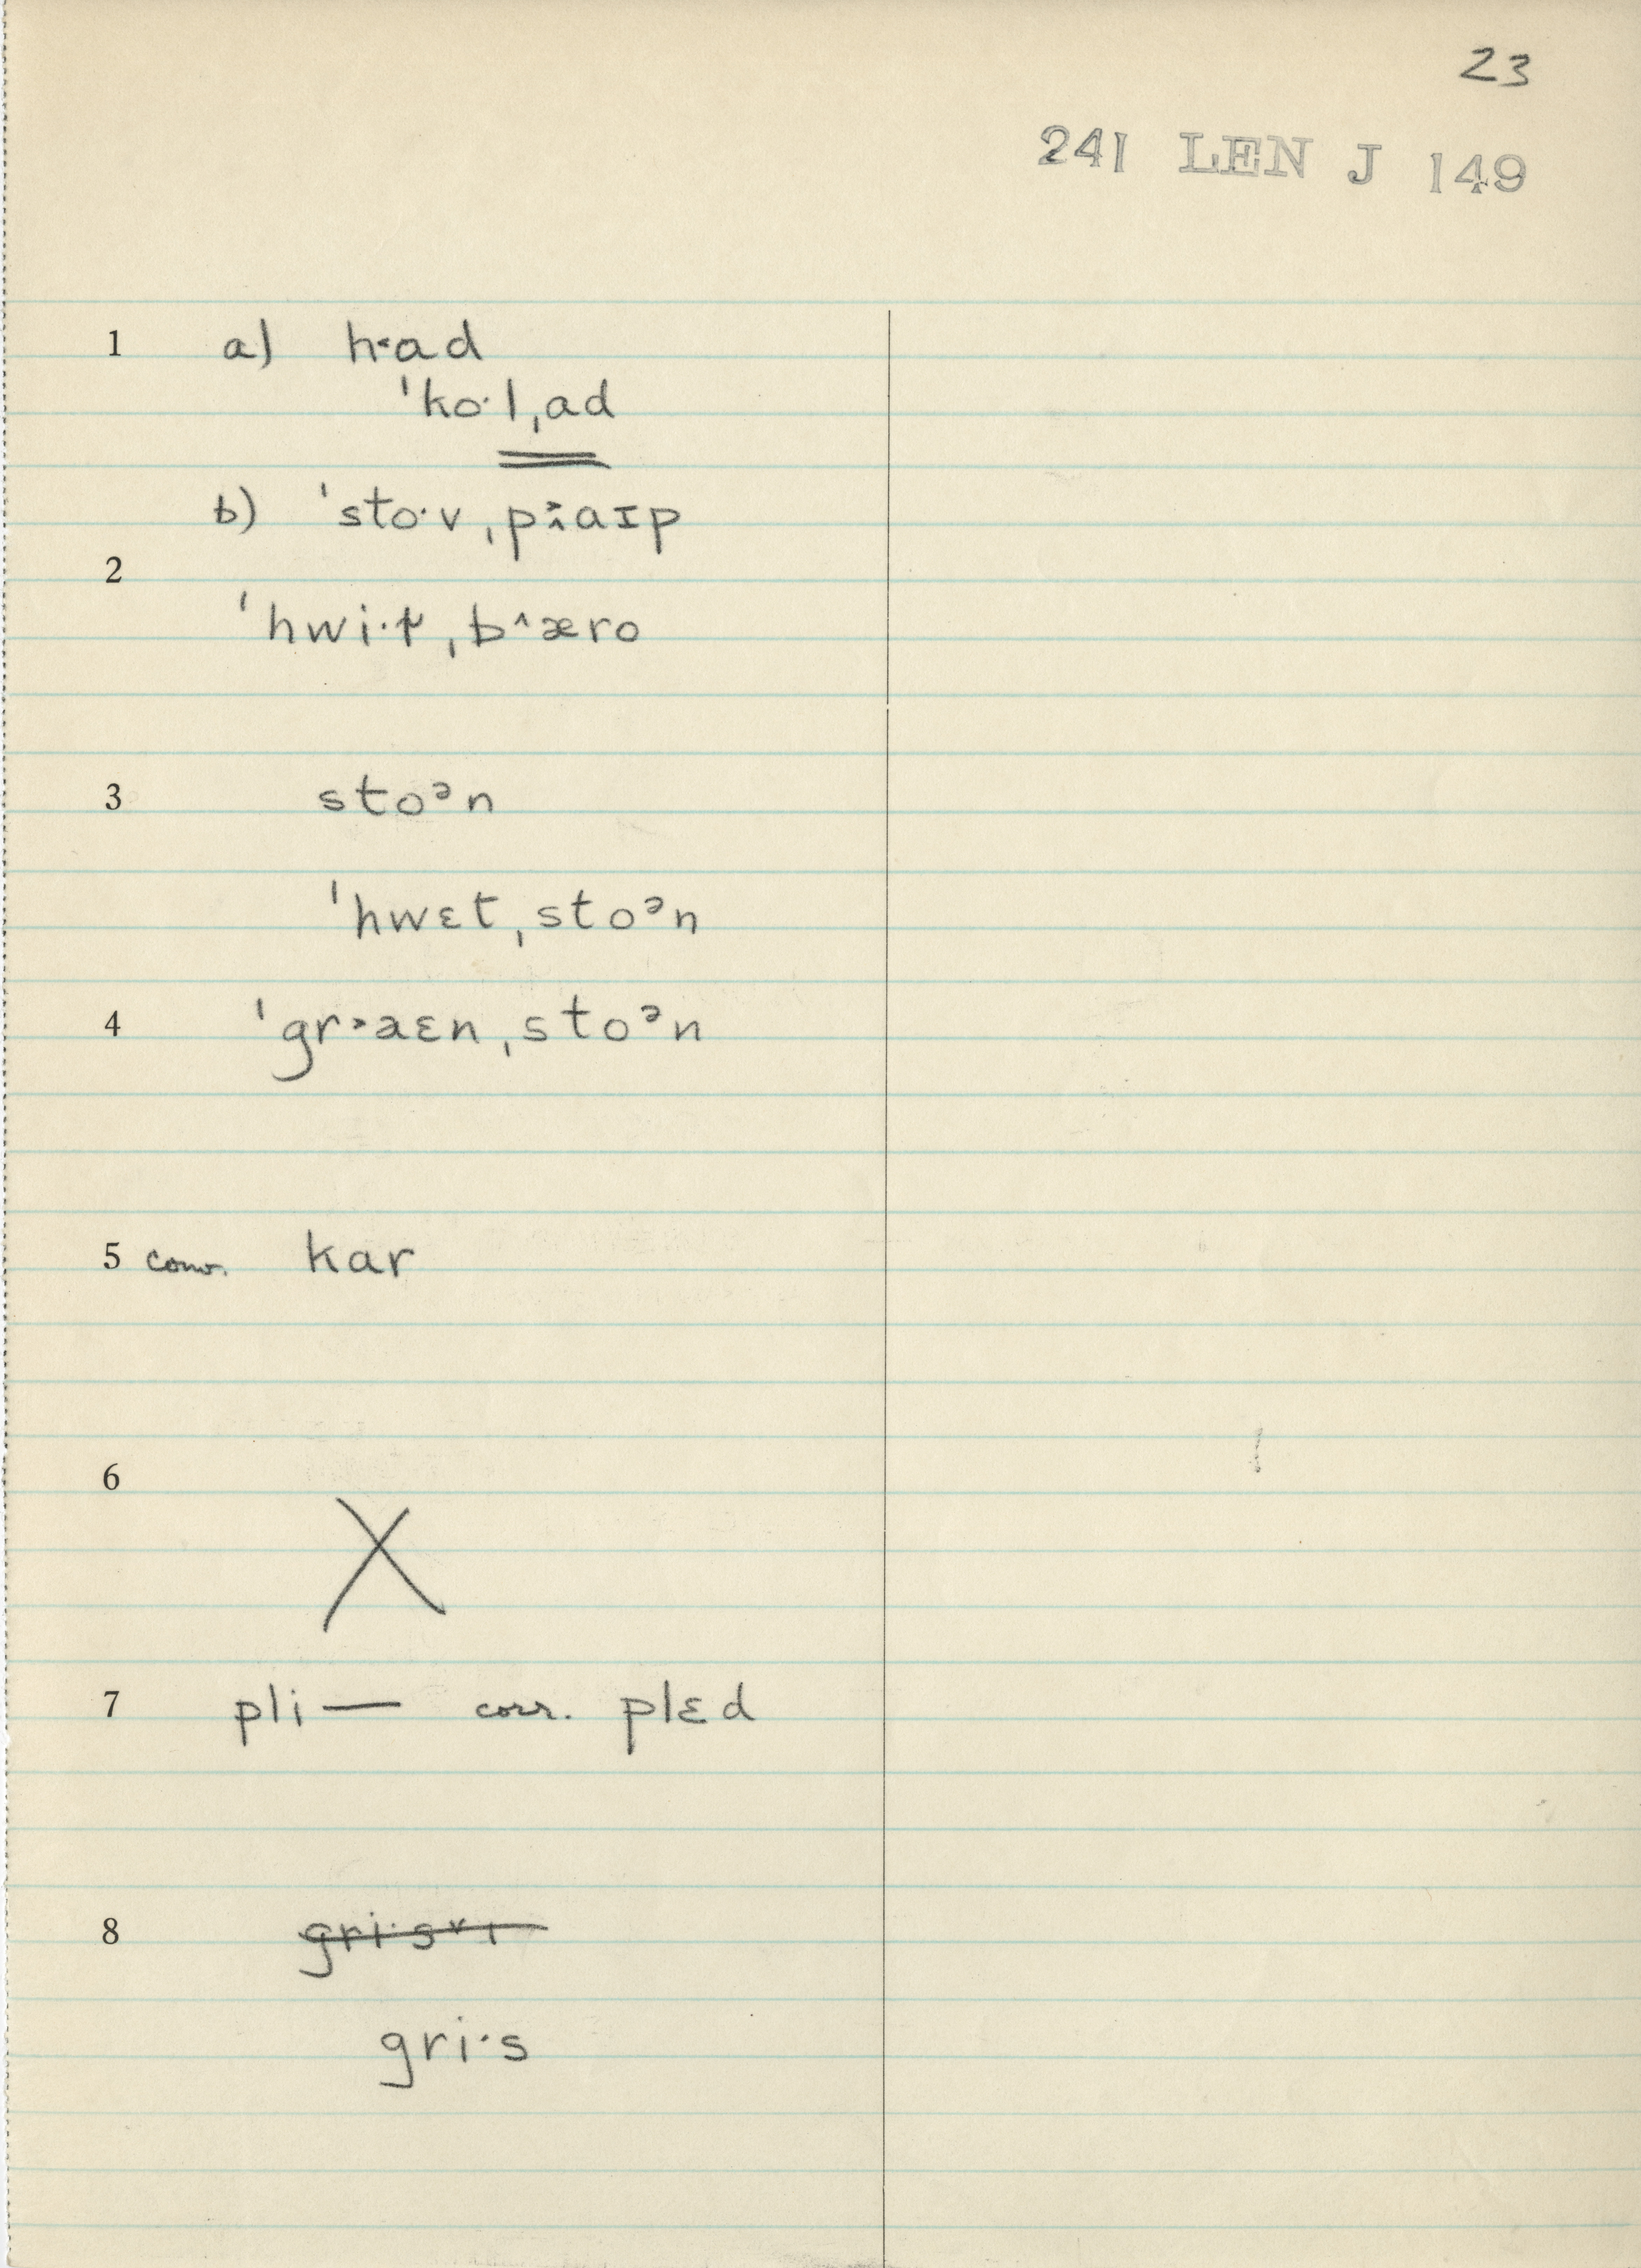 23
241 LEN J 149
1 a) h˂ad
ˈko·lˌad
b) ˈsto·vˌpaɪp
2
ˈhwi·t̬ˌb^æro
3 stoᵊn
ˈhwɛtˌstoᵊn
4 ˈgr˃aɛnˌstoᵊn
5 conv. kar
6
X
7 pli — corr. plɛd
8 gri·s˅ɪ
gri·s